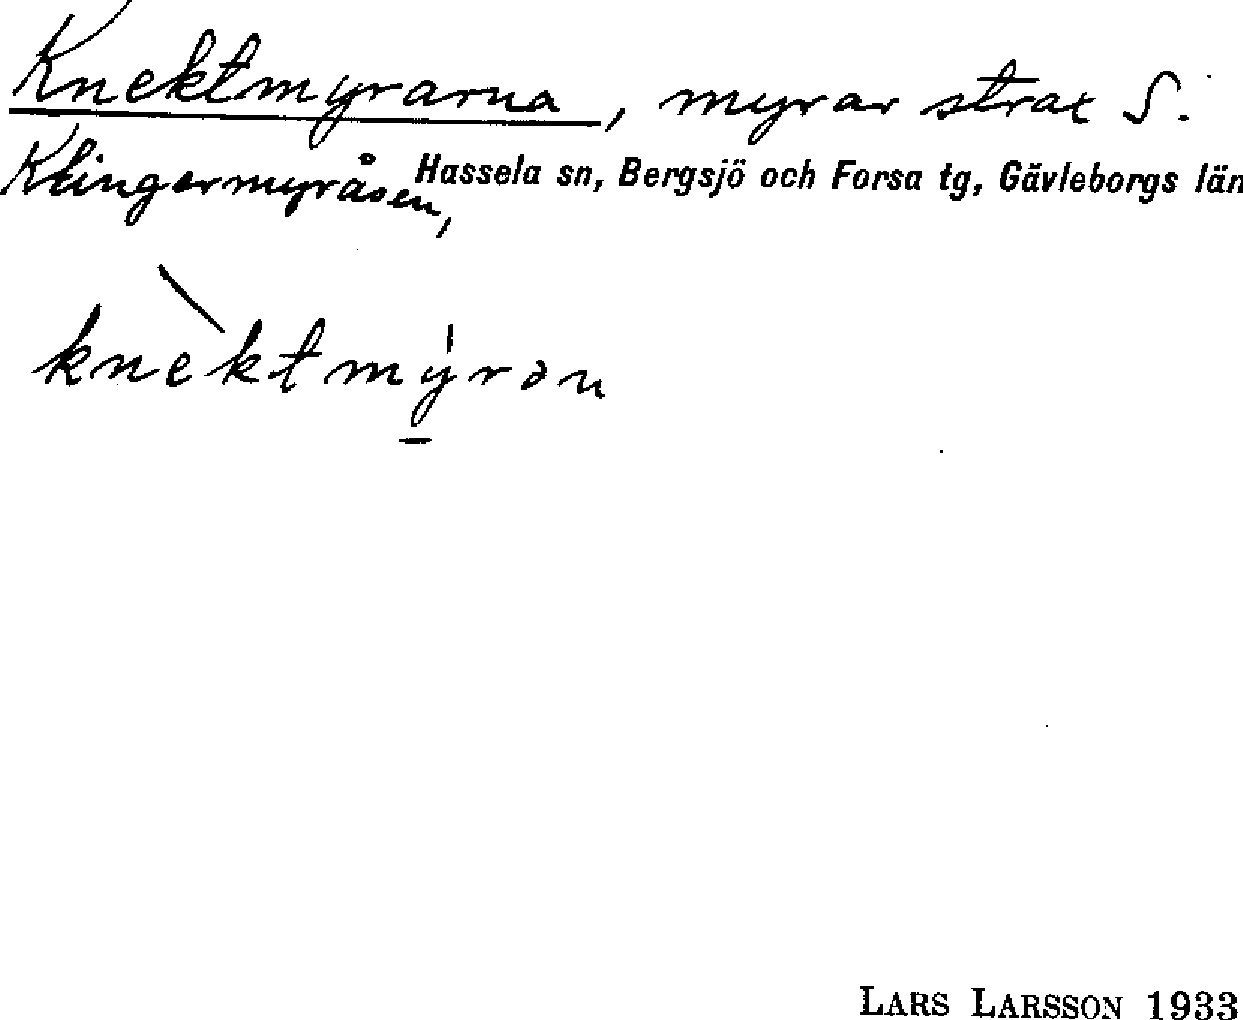 Knektmyrarna, myrar strax S.
Klingermyråsen,
Hassela sn, Bergsjö och Forsa tg, Gävleborgs län
knèktmýrɔn
LARS LARSSON 1933